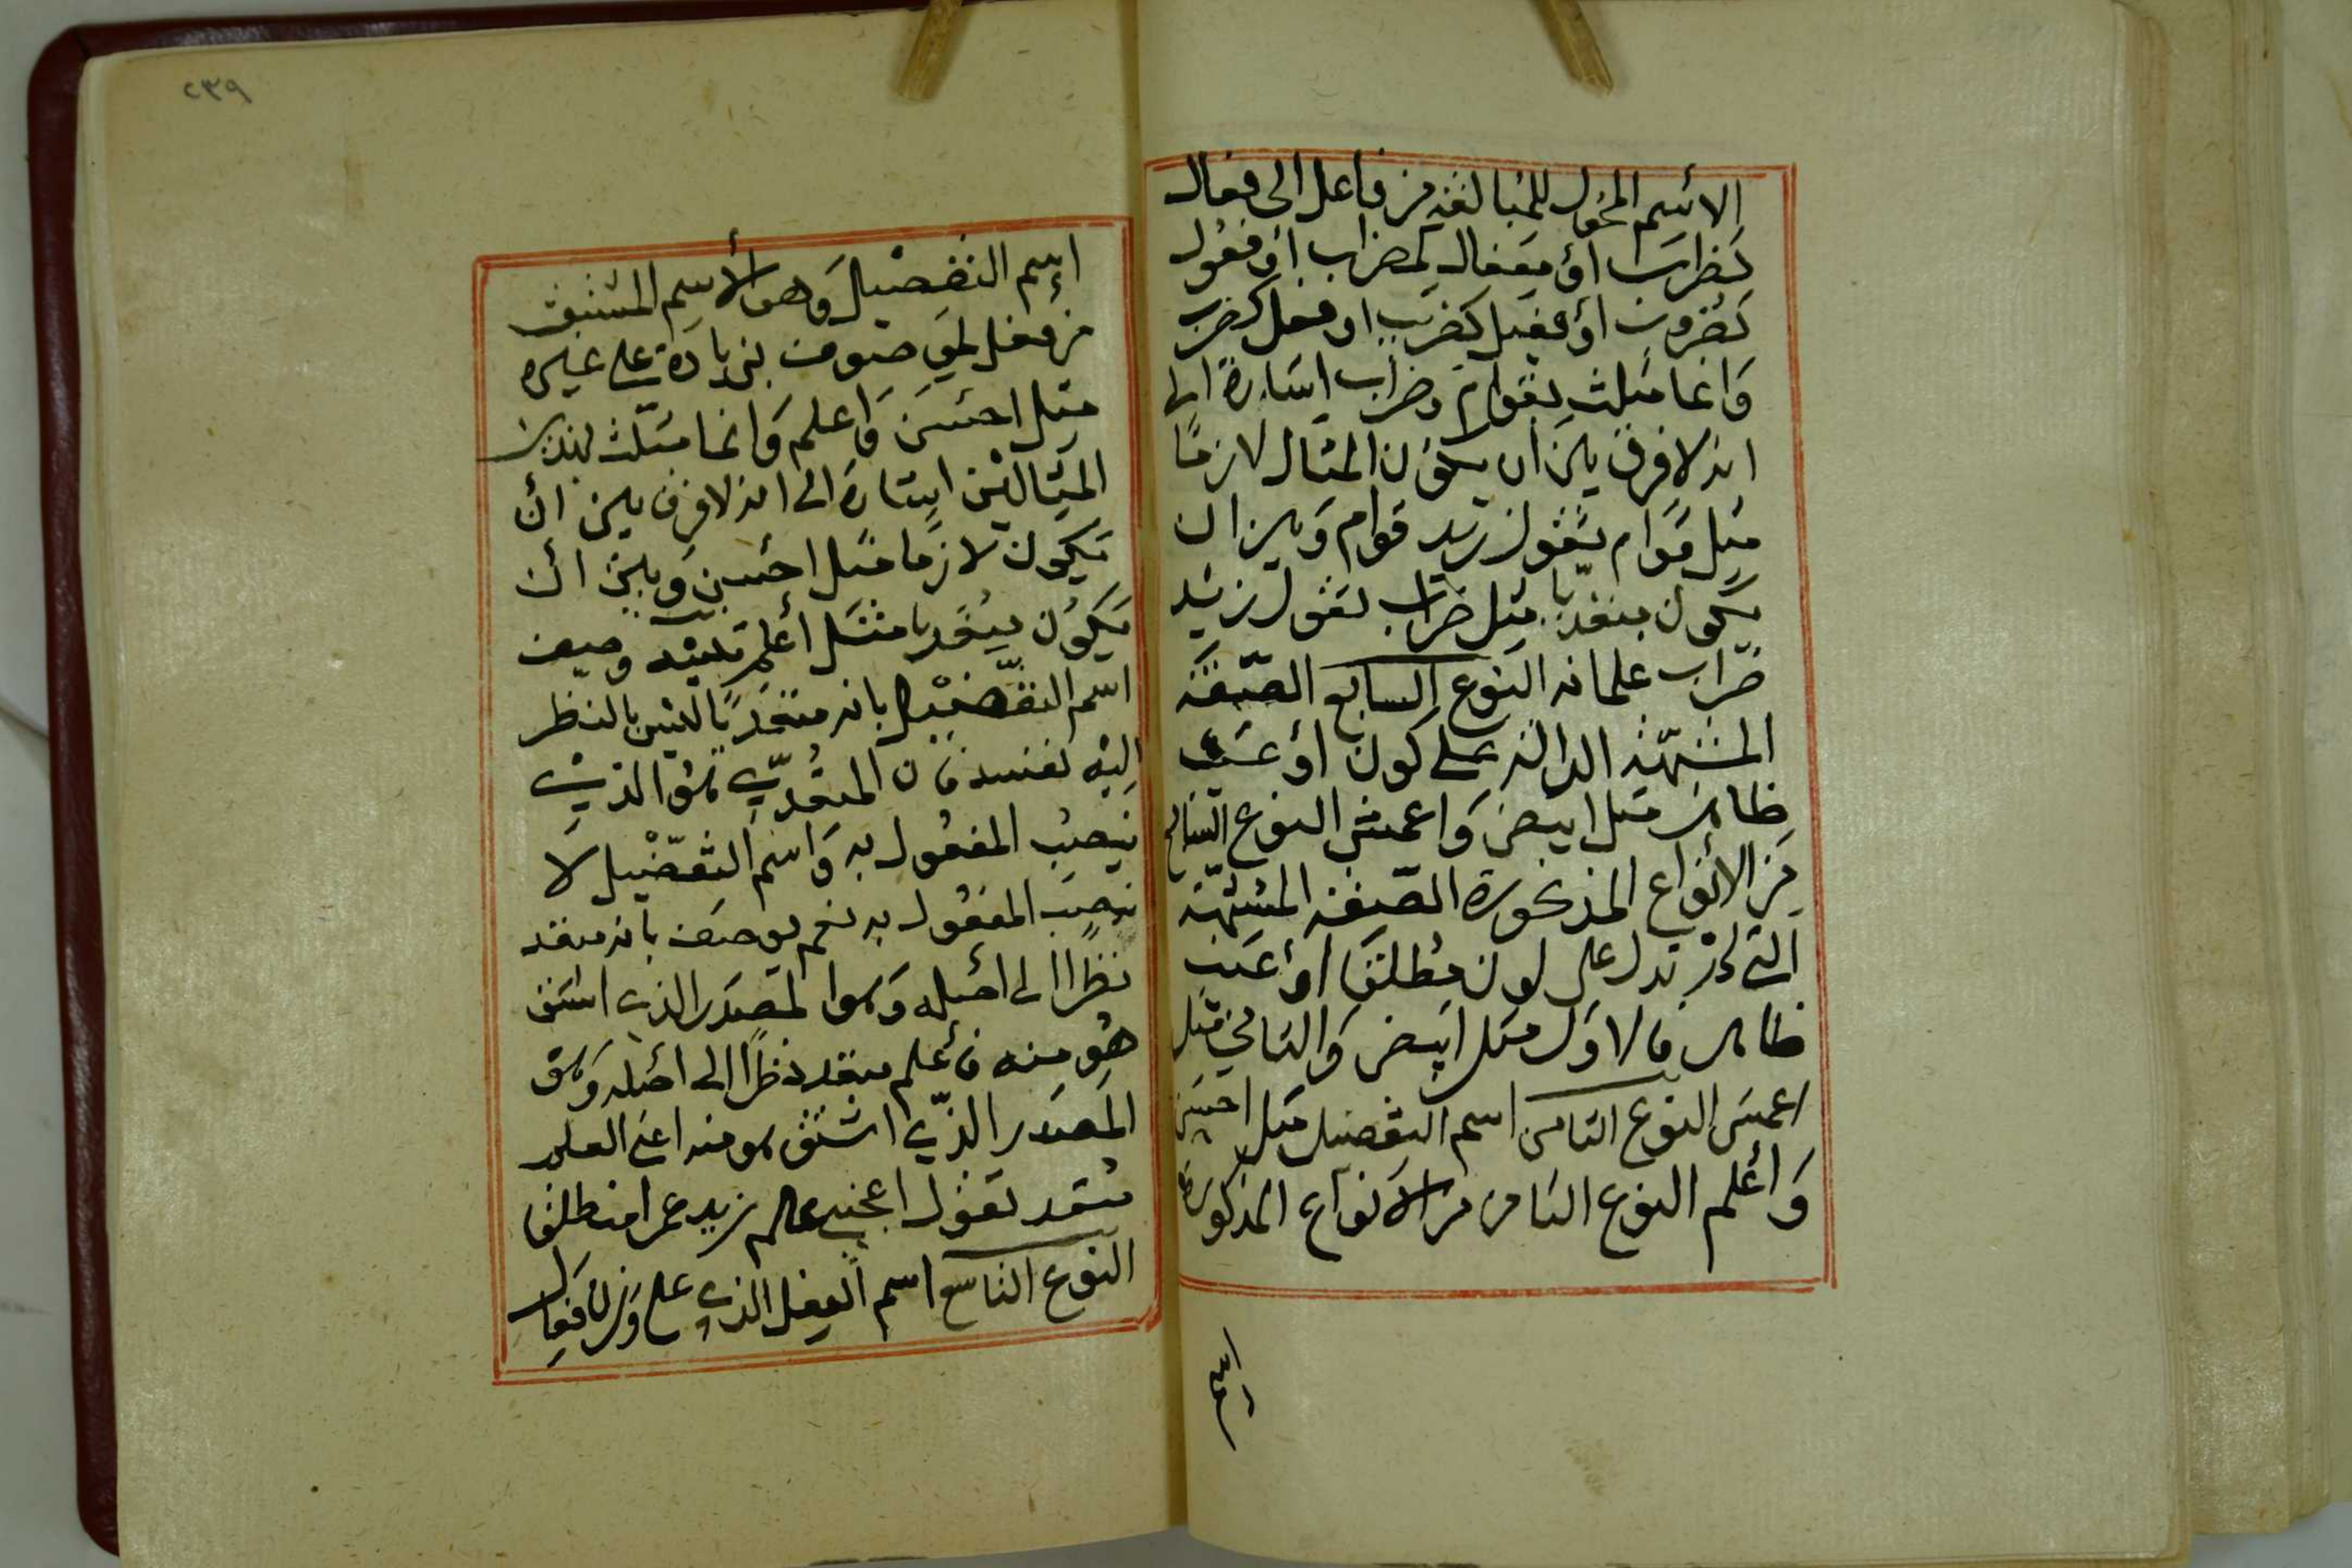 الاسم المحول للمبالغة من فاعل الى فعال
كضراب أو مفعال كمضراب أو فعول
كضروب أو فعيل كضريب او فعل كضرب
وانما مثلت بقوام وضراب اشارة الى
انه لا فرق بين ان يكون المثال لازمًا
مثل قوام تقول زيد قوام وبين ان
يكون متعديا مثل ضراب تقول زيد
ضرّاب غلمانه النوع السابع الصّفة
المشبّهة الدالة على لون أو عيب
ظاهر مثل ابيض واعمش النوع السابع
من الأنواع المذكورة الصّفة المشبّهة
التي تدل على لون مطلقا أو عيب
ظاهر فالاول مثل ابيض والثاني مثل
اعمش النوع الثامن اسم التفضيل مثل احسن
وأعلم النوع الثامن من الانواع المذكورة
اسم
٢٣٩
اسم التفضيل وهو الأسم المشتق
من فعل لموصوف بزيادة على غيره
مثل احسن واعلم وانما مثلت بهذين
المثالين اشارة الى انه لا فرق بين أن
يكون لازمًا مثل احسن وبين أن
يكون متعديا مثل أعلم وصف
اسم التفضيل بانه متعد ليس بالنظر
اليه نفسه فان المتعدّي هو الذي
ينصب المفعول به واسم التفضيل لا
ينصب المفعول به نعم يوصف بانه متعد
نظرا الى اصله وهو المصدر الذي اشتق
هو منه فأعلم متعد نظرًا الى اصله وهو
المصدر الذي اشتق هو منه اعني العلم
متعد تقول اعجبني علم زيد عمرا منطلقا
النوع التاسع اسم الفعل الذي على وزن فعال